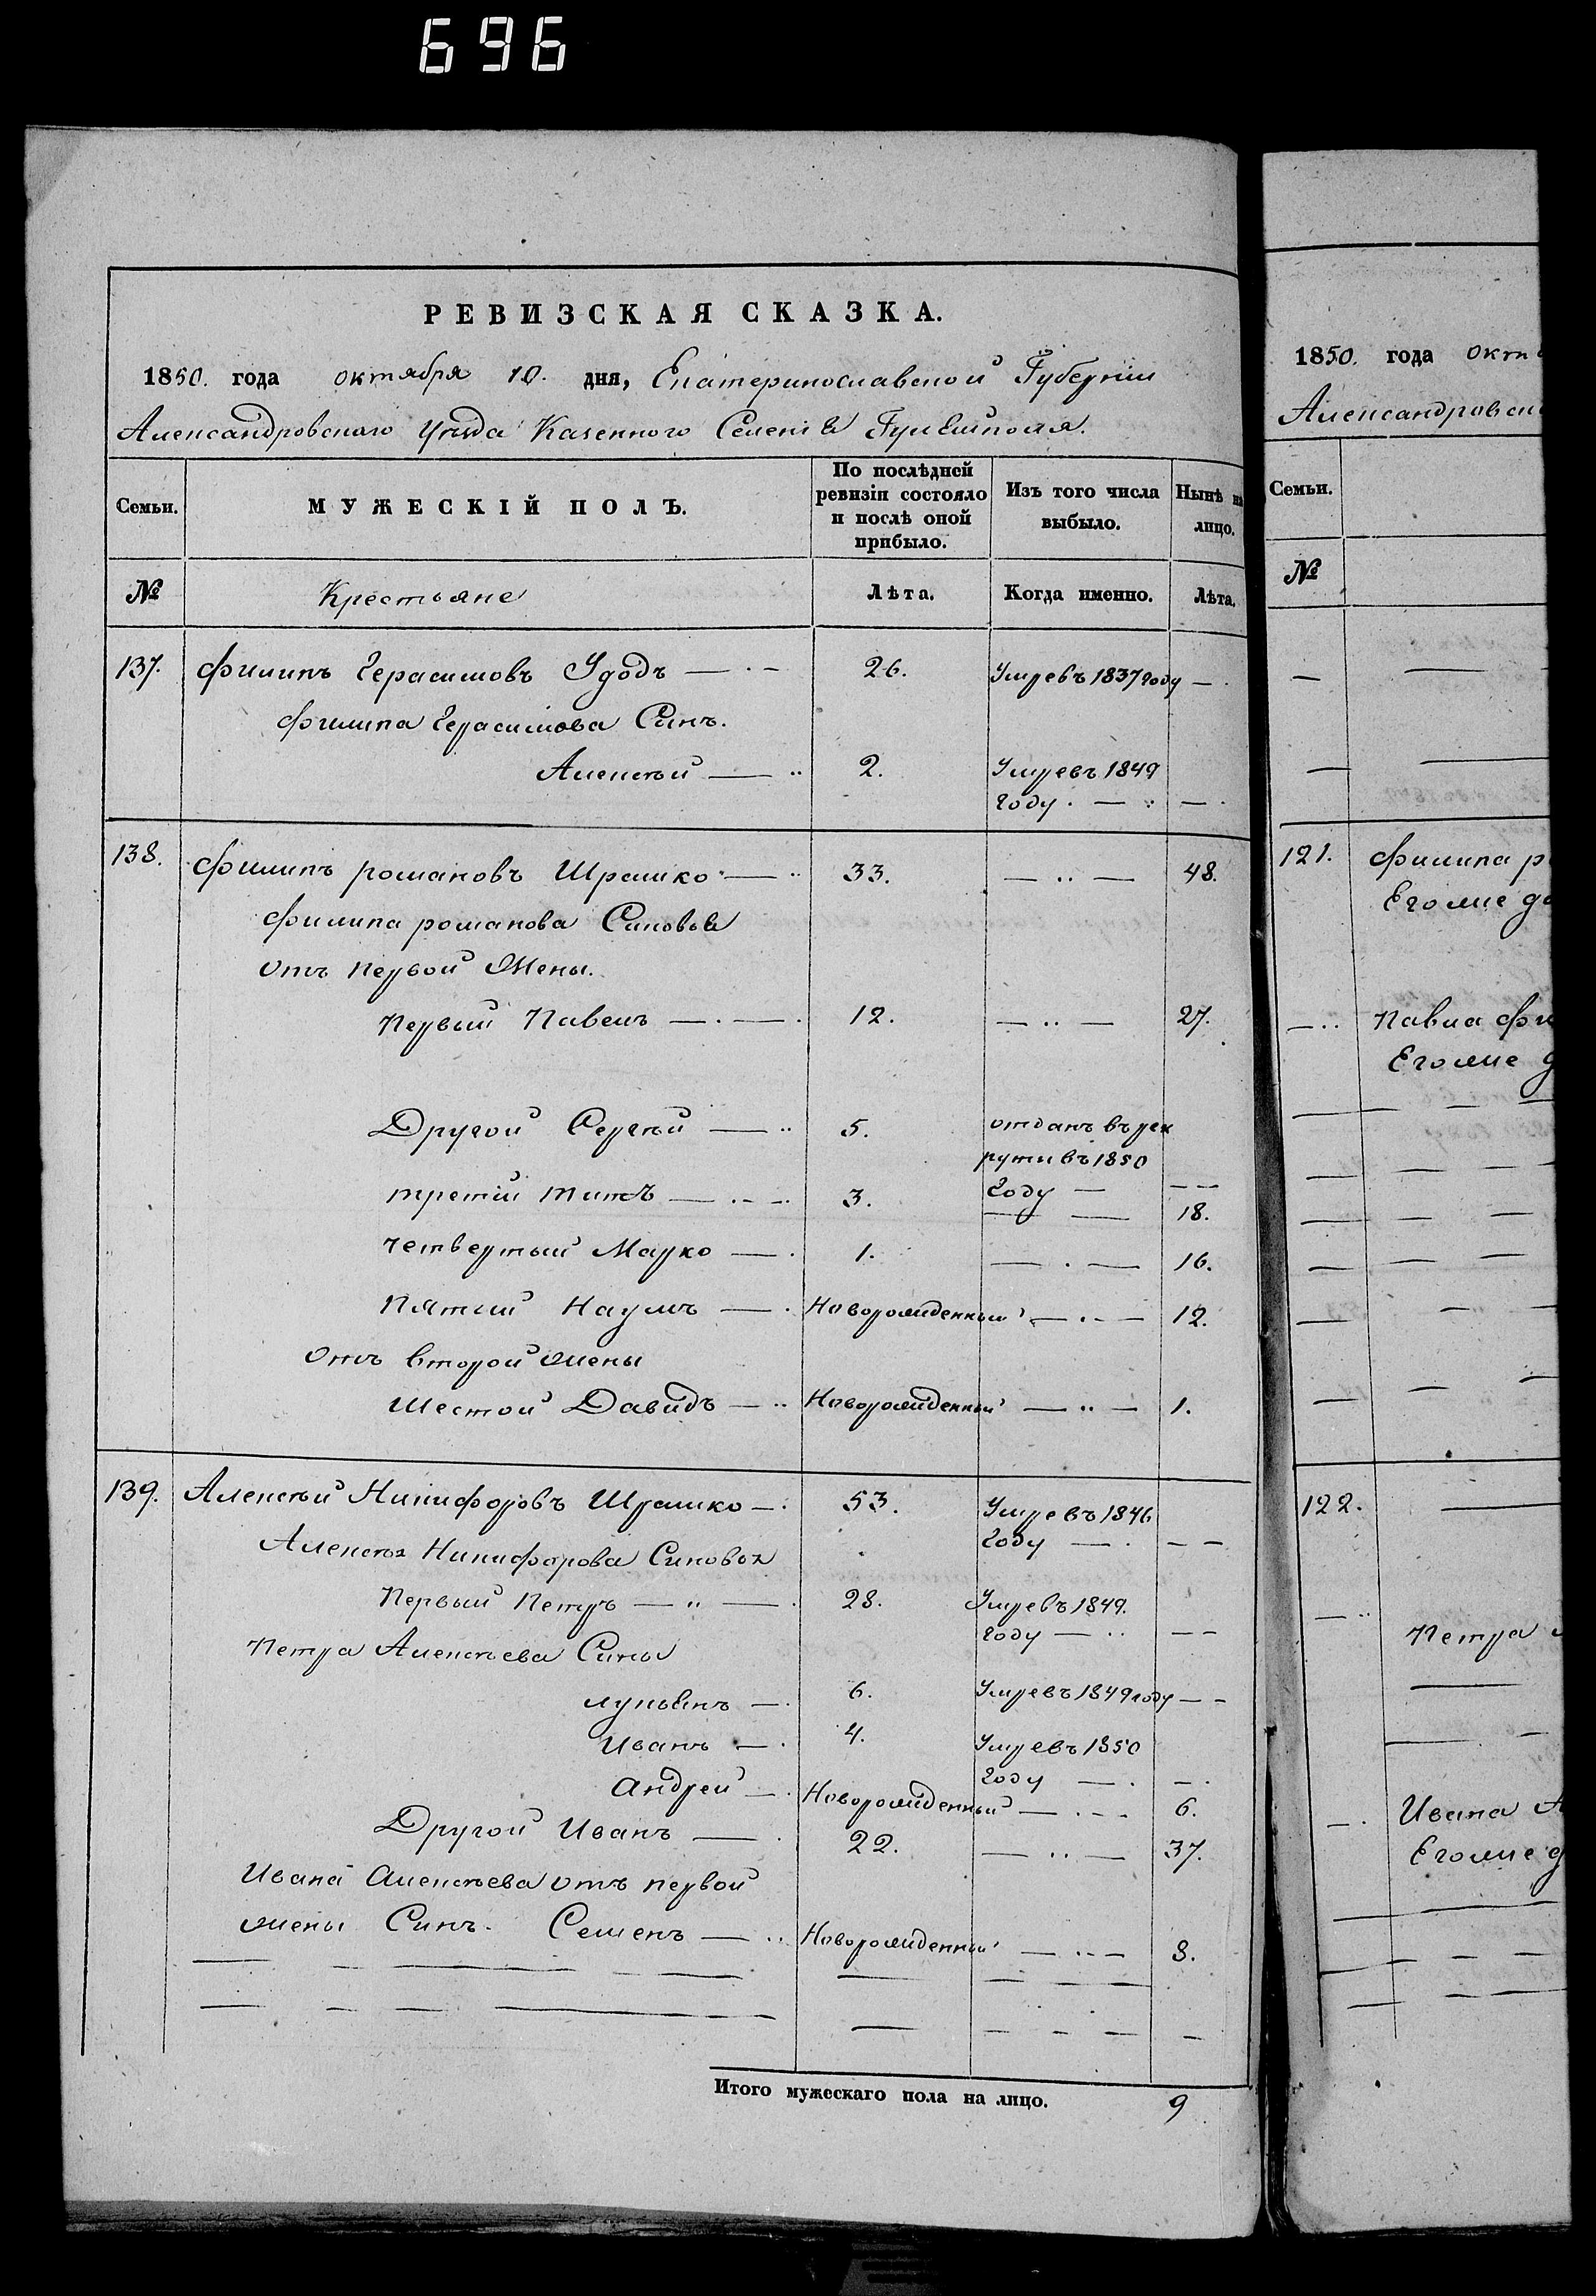 696
РЕВИЗСКАЯ СКАЗКА.
1850. года октября 10. дня, Екатеринославской Губерніи
Александровскаго Уѣзда Казенного Селенія Гуляйполя.
Семьи.
МУЖЕСКІЙ ПОЛЪ.
По послѣдней
ревизіи состояло
и послѣ оной
прибыло.
Изъ того числа
выбыло.
Нынѣ на
лицо.
№ Крестьяне Лѣта. Когда именно. Лѣта.
137. Филипъ Герасимовъ Удодъ — · — 26. Умре въ 1837 году — ·
Филипа Герасимова Сынъ.
Алексѣй — ·· 2. Умре въ 1849
году · — · — ·
138. Филипъ романовъ Шрамко · — ·· 33. — ·· — 48.
Филипа романова Сыновья
отъ первой Жены.
Первый Павелъ — · — · 12. — ·· — 27.
Другой Сергѣй — ·· 5. отданъ въ рек
руты въ 1850
году — — —
третій титъ — ·· — ·· 3. — — 18.
четвертый Марко — · 1. — · — 16.
Пятый Наумъ — · Новорожденный — · — 12.
отъ второй жены
Шестой Давидъ — ·· Новорожденный — ·· — 1.
139. Алексѣй Никифоровъ Шрамко — · 53. Умре въ 1846
году — · — —
Алексѣя Никифорова Сыновья
Первый Петръ — ·· — · 28. Умре въ 1849.
году — ·· — —
Петра Алексѣева Сыны
лукьянъ — · 6. Умре въ 1849 году — —
Иванъ — · 4. Умре въ 1850
году — · — ·
Андрей — · Новорожденный — · — 6.
Другой Иванъ — · 22. — ·· — 37.
Ивана Алексѣева отъ первой
жены Сынъ. Семенъ — ·· Новорожденный — ·· — 8.
Итого мужескаго пола на лицо. 9
1850. года окт
Александровск
Семьи.
№
121. Филипа р
Его же д
— ·· Павла Фи
Его же д
122.
Петра
— · Ивана А
Его же д